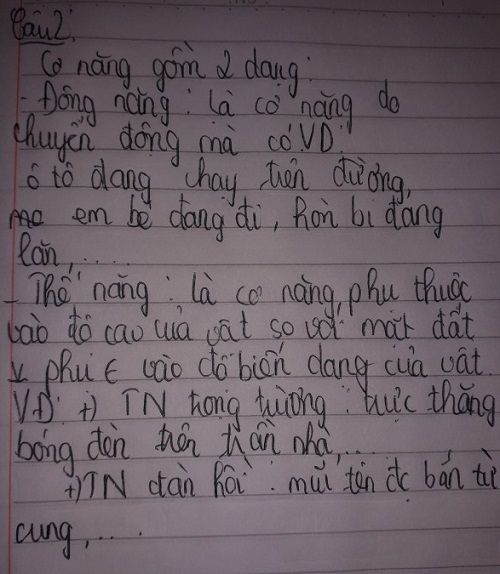 Câu 2:
Cơ năng gồm 2 dạng:
- Động năng: là cơ năng do
chuyển động mà có VD:
ô tô đang chạy trên đường,
em bé đang đi, hòn bi đang
lăn,.....
- Thế năng: là cơ năng phụ thuộc
vào độ cao của vật so với mặt đất
v phụ ∈ vào độ biến dạng của vật.
VD: +) TN trọng trường: trực thăng
bóng đèn trên trần nhà,...
+) TN đàn hồi: mũi tên đc bắn từ
cung,....